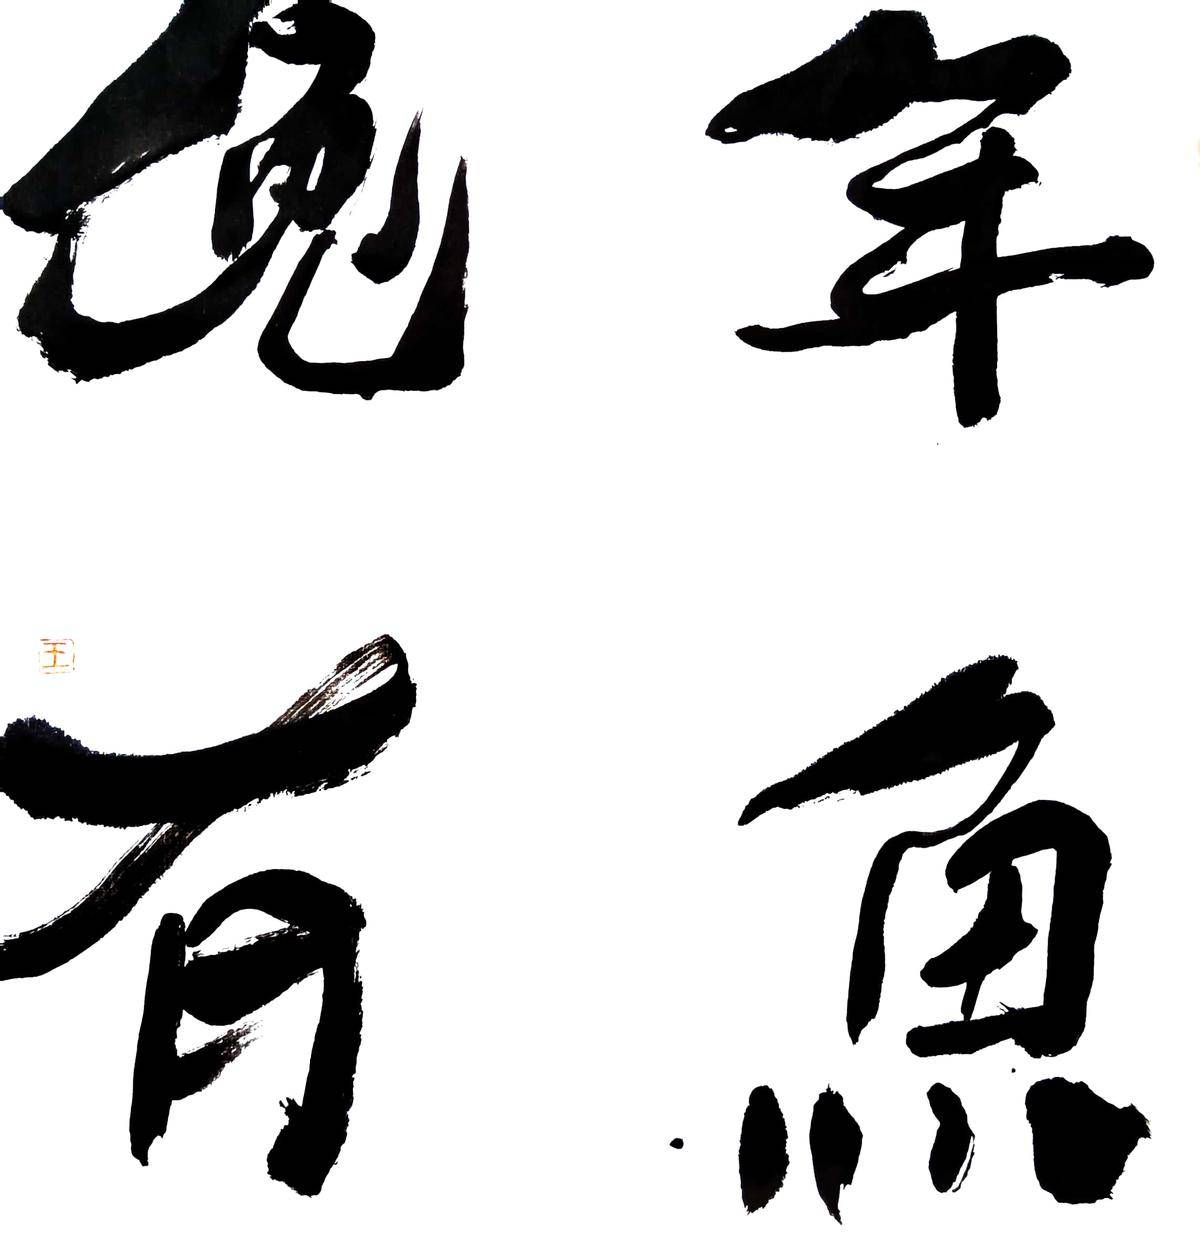 兔年
有魚
王